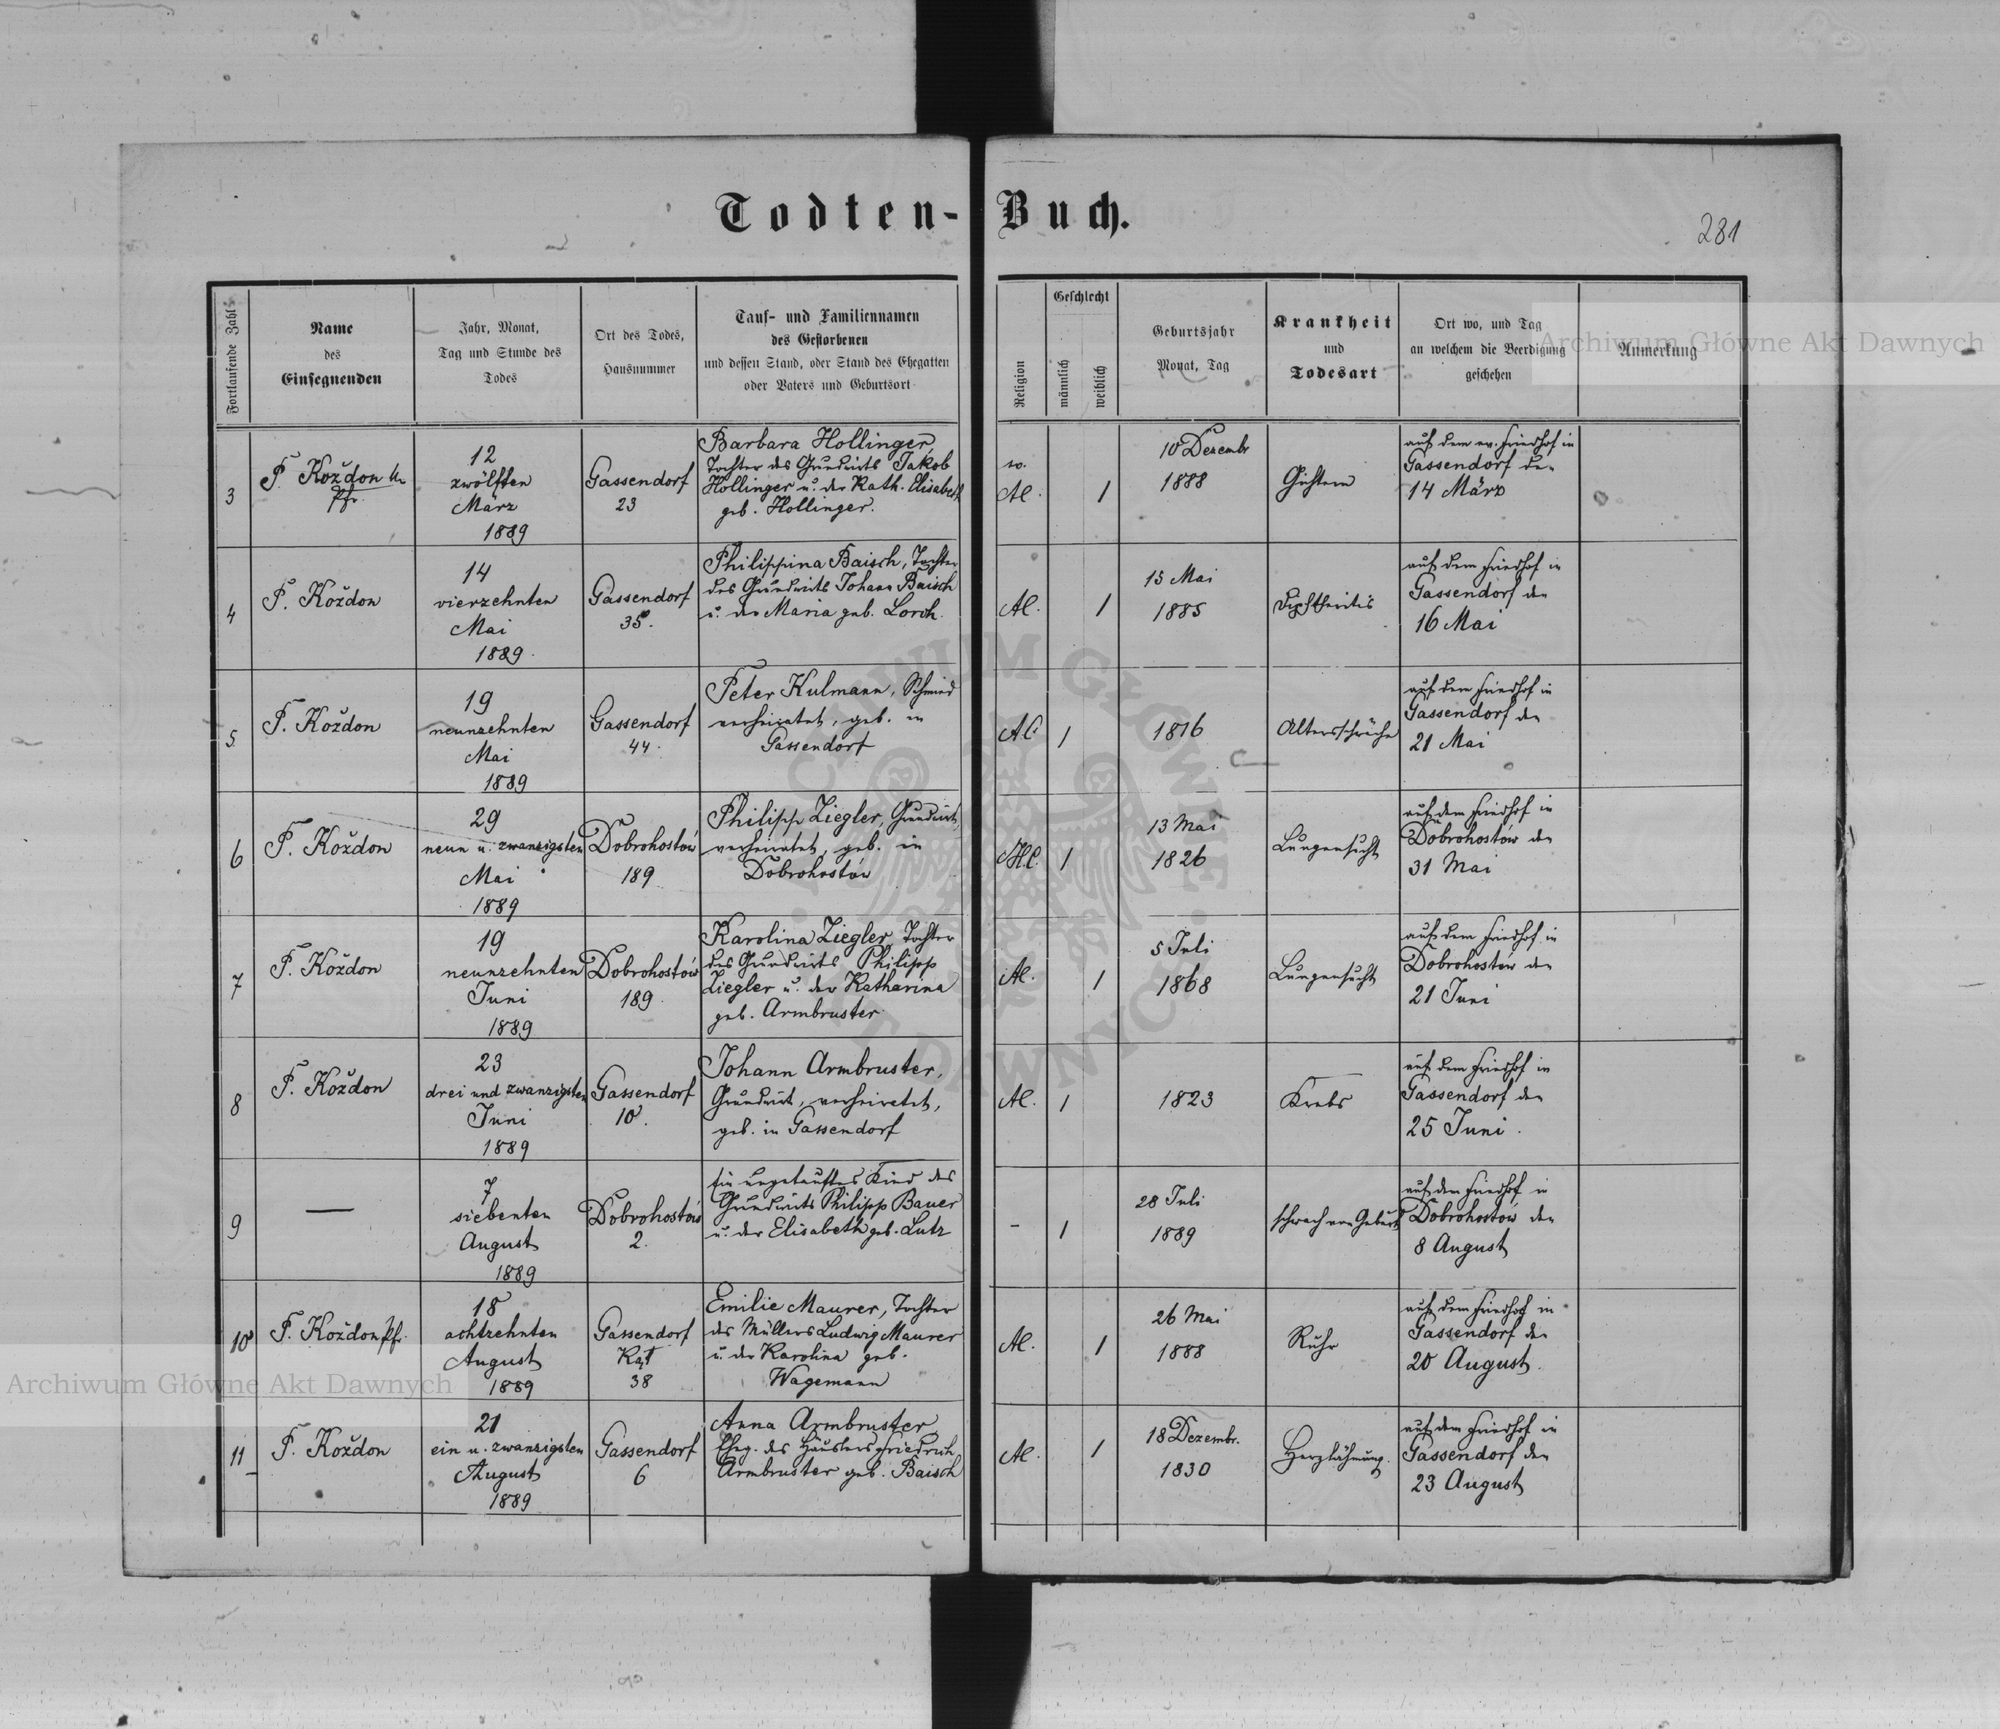 Todten-Buch.
281
Fortlaufende Zahl
Name
des
Einsegnenden
Jahr, Monat,
Tag und Stunde des
Todes
Ort des Todes,
Hausnummer
Tauf- und Familiennamen
des Gestorbenen
und dessen Stand, oder Stand des Ehegatten
oder Vaters und Geburtsort
Religion
Geschlecht
männlich
weiblich
Geburtsjahr
Monat, Tag
Krankheit
und
Todesart
Ort wo, und Tag
an welchem die Beerdigung
geschehen
Anmerkung
3
F. Koždon
Pfr.
12
zwölften
März
1889
Gassendorf
23
Barbara Hollinger,
Tochter des Grundwirts Jakob
Hollinger u. der Kath. Elisabeth
geb. Hollinger.
ev.
AC.
1
10 Dezembr
1888
auf dem ev. Friedhof in
Gassendorf den
14 März
4
F. Koždon
14
vierzehnten
Mai
1889.
Gassendorf
35.
Philippina Baisch, Tochter
des Grundwirts Johann Baisch
u. der Maria geb. Lorch.
AC.
1
15 Mai
1885
Diphtheritis
auf dem Friedhof in
Gassendorf den
16 Mai
5
F. Koždon
19
neunzehnten
Mai
1889
Gassendorf
44.
Peter Kulmann, Schmied
verheiratet, geb. in
Gassendorf
AC
1
1816
Altersschwäche
auf dem Friedhof in
Gassendorf den
21 Mai
6
F. Koždon
29
neun u. zwanzigsten
Mai
1889
Dobrohostów
189
Philipp Ziegler, Grundwirt,
verheiratet, geb. in
Dobrohostów
HC.
1
13 Mai
1826
Lungensucht
auf dem Friedhof in
Dobrohostów den
31 Mai
7
F. Koždon
19
neunzehnten
Juni
1889
Dobrohostów
189.
Karolina Ziegler, Tochter
des Grundwirts Philipp
Ziegler u. der Katharina
geb. Armbruster
AC.
1
5 Juli
1868
Lungensucht
auf dem Friedhof in
Dobrohostów den
21 Juni
8
F. Koždon
23
drei und zwanzigsten
Juni
1889
Gassendorf
10.
Johann Armbruster,
Grundwirt, verheiratet,
geb. in Gassendorf
AC.
1
1823
Krebs
auf dem Friedhof in
Gassendorf den
25 Juni.
9
—
7
siebenten
August
1889
Dobrohostów
2.
Ein ungetauftes Kind des
Grundwirts Philipp Bauer
u. der Elisabeth geb. Lutz
-
1
28 Juli
1889
schwach von Geburt
auf dem Friedhof in
Dobrohostów den
8 August
10
F. Koždon Pfr.
18
achtzehnten
August
1889
Gassendorf
Kat
38
Emilie Maurer, Tochter
des Müllers Ludwig Maurer
u. der Karolina geb.
Wagemann
AC.
1
26 Mai
1888
Ruhr
auf dem Friedhof in
Gassendorf den
20 August.
11
F. Koždon
21
ein u. zwanzigsten
August
1889
Gassendorf
6
Anna Armbruster
Eheg. des Häuslers Friedrich
Armbruster geb. Baisch
AC.
1
18 Dezembr.
1830
Herzlähmung.
auf dem Friedhof in
Gassendorf den
23 August
Archiwum Główne Akt Dawnych
Archiwum Główne Akt Dawnych
ARCHIWUM GŁÓWNE AKT DAWNYCH